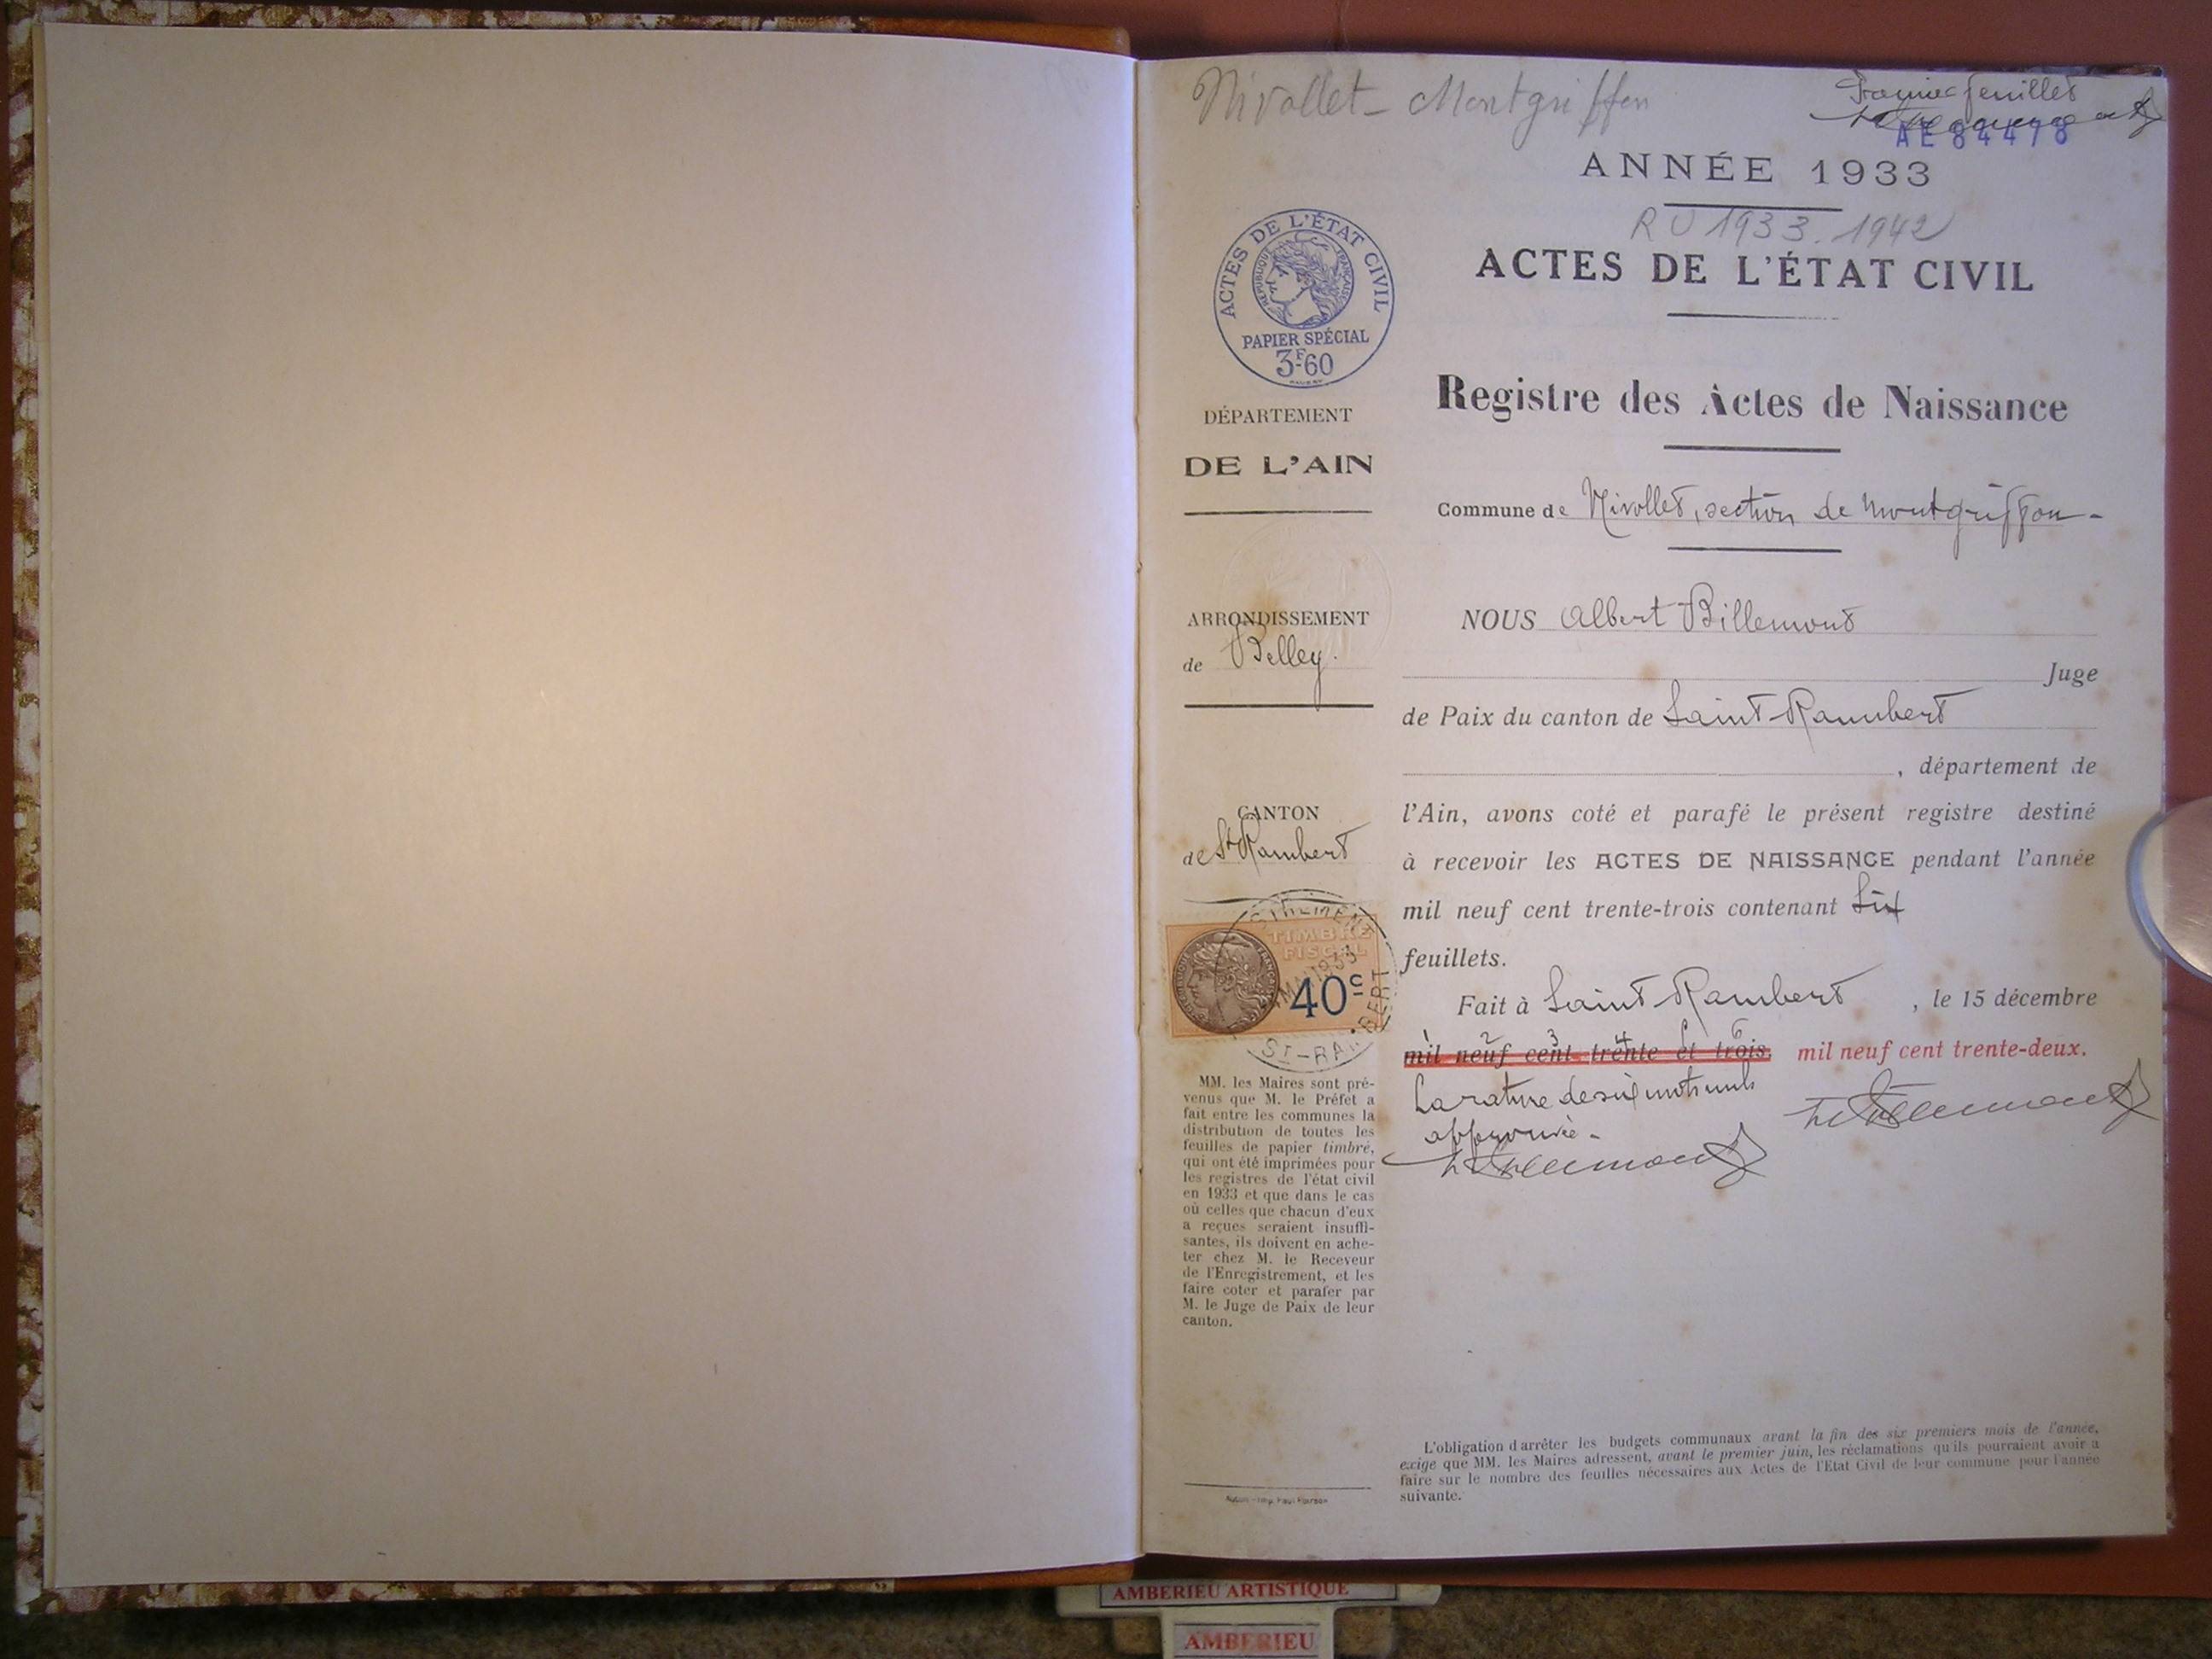 Nivollet - Montgriffon
Premier feuillet
AE 84478
ANNÉE 1933
RU 1933.1942
ACTES DE L'ÉTAT CIVIL
ACTES DE L'ÉTAT CIVIL
RÉPUBLIQUE FRANÇAISE
PAPIER SPÉCIAL
3F60
Registre des Actes de Naissance
DÉPARTEMENT
DE L'AIN
Commune de Nivollet, section de Montgriffon -
ARRONDISSEMENT
de Belley.
NOUS Albert Billemont
Juge
de Paix du canton de Saint-Rambert
, département de
CANTON
de St Rambert
l'Ain, avons coté et parafé le présent registre destiné
à recevoir les ACTES DE NAISSANCE pendant l'année
mil neuf cent trente-trois contenant Six
feuillets.
TIMBRE
FISCAL
40c
1933
ST-RA BERT
Fait à Saint-Rambert , le 15 décembre
1 2 3 4 5 6
mil neuf cent trente et trois. mil neuf cent trente-deux.
La rature de six mots nuls
approuvée -
Billemont
Billemont
MM. les Maires sont pré-
venus que M. le Préfet a
fait entre les communes la
distribution de toutes les
feuilles de papier timbré,
qui ont été imprimées pour
les registres de l'état civil
en 1933 et que dans le cas
où celles que chacun d'eux
a reçues seraient insuffi-
santes, ils doivent en ache-
ter chez M. le Receveur
de l'Enregistrement, et les
faire coter et parafer par
M. le Juge de Paix de leur
canton.
L'obligation d'arrêter les budgets communaux avant la fin des six premiers mois de l'année,
exige que MM. les Maires adressent, avant le premier juin, les réclamations qu'ils pourraient avoir à
faire sur le nombre des feuilles nécessaires aux Actes de l'Etat Civil de leur commune pour l'année
suivante.
AMBERIEU ARTISTIQUE
AMBERIEU